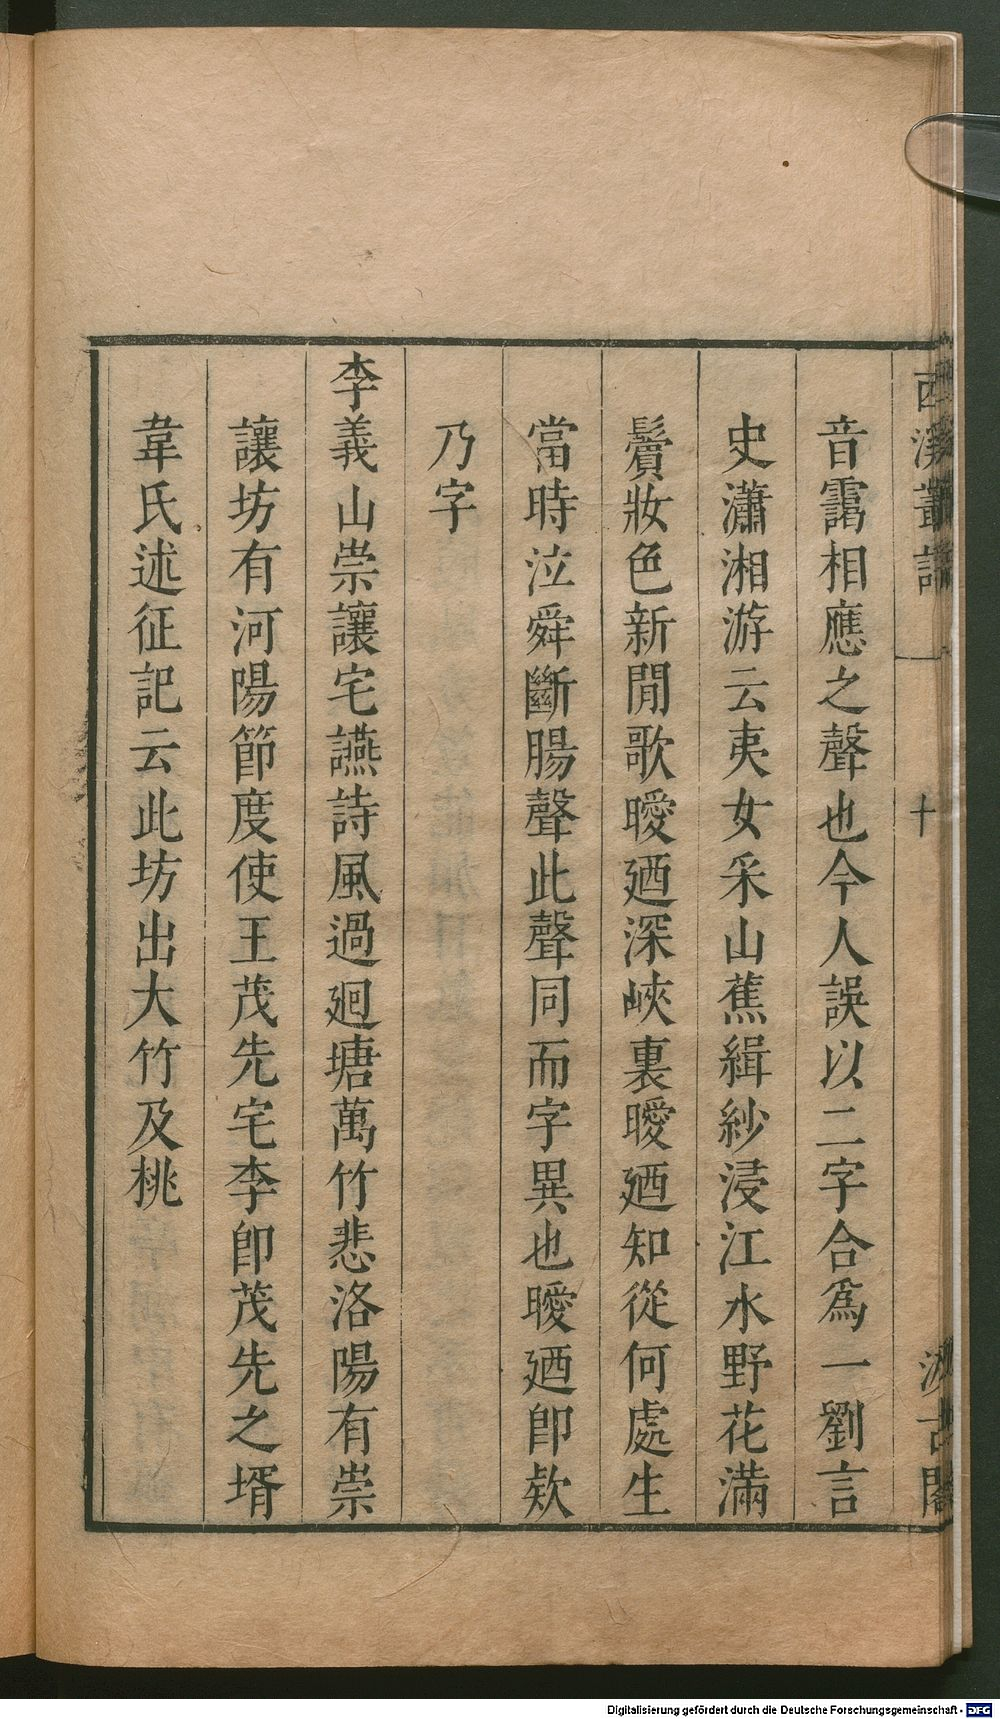 西溪叢語
十
汲古閣
音靄相應之聲也今人誤以二字合爲一劉言
史瀟湘游云夷女采山蕉緝紗浸江水野花滿
鬢妝色新閒歌曖廼深峽裏曖廼知從何處生
當時泣舜斷腸聲此聲同而字異也曖廼卽欸
乃字
李義山崇讓宅讌詩風過迴塘萬竹悲洛陽有崇
讓坊有河陽節度使王茂先宅李卽茂先之壻
韋氏述征記云此坊出大竹及桃
Digitalisierung gefördert durch die Deutsche Forschungsgemeinschaft - DFG